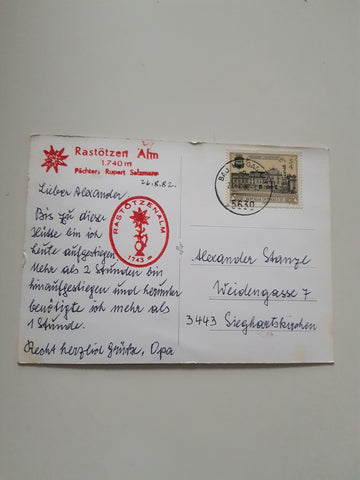 Rastötzen Alm
1.740 m
Pächter: Rupert Salzmann
26.8.82.
Lieber Alexander
Bis zu dieser
Hütte bin ich
heute aufgestiegen.
Mehr als 2 Stunden bin
hinaufgestiegen und herunter
benötigte ich mehr als
1 Stunde.
Recht herzliche Grüße, Opa
RASTÖTZENALM
1743 m
5630
Alexander Stanzl
Weidengasse 7
3443 Sieghartskirchen